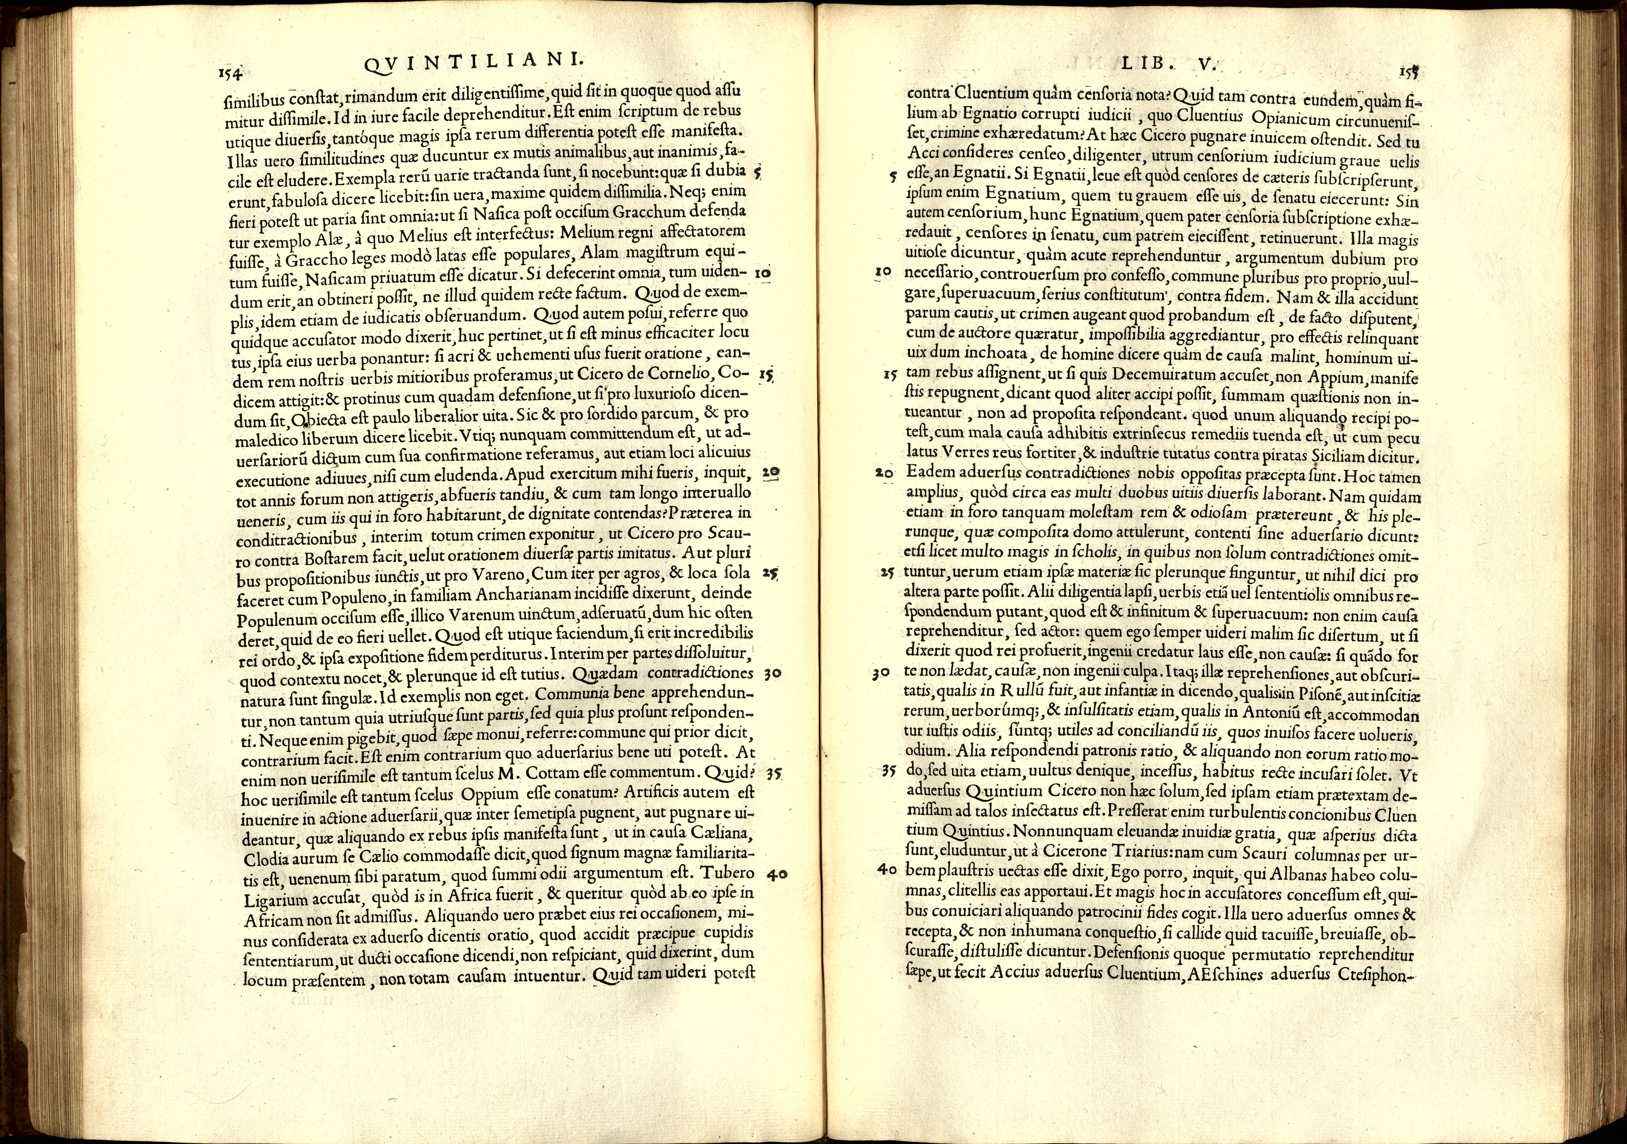 154
QVINTILIANI.
similibus cōnstat, rimandum erit diligentissime, quid sit in quoque quod assu
mitur dissimile. Id in iure facile deprehenditur. Est enim scriptum de rebus
utique diuersis, tantóque magis ipsa rerum differentia potest esse manifesta.
Illas uero similitudines quæ ducuntur ex mutis animalibus, aut inanimis, fa-
cile est eludere. Exempla rerū uarie tractanda sunt, si nocebunt: quæ si dubia 5
erunt, fabulosa dicere licebit: sin uera, maxime quidem dissimilia. Neq; enim
fieri potest ut paria sint omnia: ut si Nasica post occisum Gracchum defenda
tur exemplo Alæ, à quo Melius est interfectus: Melium regni affectatorem
fuisse, à Graccho leges modò latas esse populares, Alam magistrum equi-
tum fuisse, Nasicam priuatum esse dicatur. Si defecerint omnia, tum uiden- 10
dum erit, an obtineri possit, ne illud quidem recte factum. Quod de exem-
plis, idem etiam de iudicatis obseruandum. Quod autem posui, referre quo
quidque accusator modo dixerit, huc pertinet, ut si est minus efficaciter locu
tus, ipsa eius uerba ponantur: si acri & uehementi usus fuerit oratione, ean-
dem rem nostris uerbis mitioribus proferamus, ut Cicero de Cornelio, Co- 15
dicem attigit: & protinus cum quadam defensione, ut si pro luxurioso dicen-
dum sit, Obiecta est paulo liberalior uita. Sic & pro sordido parcum, & pro
maledico liberum dicere licebit. Vtiq; nunquam committendum est, ut ad-
uersariorū dictum cum sua confirmatione referamus, aut etiam loci alicuius
executione adiuues, nisi cum eludenda. Apud exercitum mihi fueris, inquit, 20
tot annis forum non attigeris, abfueris tandiu, & cum tam longo interuallo
ueneris, cum iis qui in foro habitarunt, de dignitate contendas? Præterea in
conditractionibus, interim totum crimen exponitur, ut Cicero pro Scau-
ro contra Bostarem facit, uelut orationem diuersæ partis imitatus. Aut pluri
bus propositionibus iunctis, ut pro Vareno, Cum iter per agros, & loca sola 25
faceret cum Populeno, in familiam Ancharianam incidisse dixerunt, deinde
Populenum occisum esse, illico Varenum uinctum, adseruatū, dum hic osten
deret, quid de eo fieri uellet. Quod est utique faciendum, si erit incredibilis
rei ordo, & ipsa expositione fidem perditurus. Interim per partes dissoluitur,
quod contextu nocet, & plerunque id est tutius. Quædam contradictiones 30
natura sunt singulæ. Id exemplis non eget. Communia bene apprehendun-
tur, non tantum quia utriusque sunt partis, sed quia plus prosunt responden-
ti. Neque enim pigebit, quod sæpe monui, referre: commune qui prior dicit,
contrarium facit. Est enim contrarium quo aduersarius bene uti potest. At
enim non uerisimile est tantum scelus M. Cottam esse commentum. Quid? 35
hoc uerisimile est tantum scelus Oppium esse conatum? Artificis autem est
inuenire in actione aduersarii, quæ inter semetipsa pugnent, aut pugnare ui-
deantur, quæ aliquando ex rebus ipsis manifesta sunt, ut in causa Cæliana,
Clodia aurum se Cælio commodasse dicit, quod signum magnæ familiarita-
tis est, uenenum sibi paratum, quod summi odii argumentum est. Tubero 40
Ligarium accusat, quòd is in Africa fuerit, & queritur quòd ab eo ipse in
Africam non sit admissus. Aliquando uero præbet eius rei occasionem, mi-
nus considerata ex aduerso dicentis oratio, quod accidit præcipue cupidis
sententiarum, ut ducti occasione dicendi, non respiciant, quid dixerint, dum
locum præsentem, non totam causam intuentur. Quid tam uideri potest
LIB. V.
155
contra Cluentium quàm censoria nota? Quid tam contra eundem, quàm fi-
lium ab Egnatio corrupti iudicii, quo Cluentius Opianicum circunuenis-
set, crimine exhæredatum? At hæc Cicero pugnare inuicem ostendit. Sed tu
Acci consideres censeo, diligenter, utrum censorium iudicium graue uelis
5 esse, an Egnatii. Si Egnatii, leue est quòd censores de cæteris subscripserunt,
ipsum enim Egnatium, quem tu grauem esse uis, de senatu eiecerunt: Sin
autem censorium, hunc Egnatium, quem pater censoria subscriptione exhæ-
redauit, censores in senatu, cum patrem eiecissent, retinuerunt. Illa magis
uitiose dicuntur, quàm acute reprehenduntur, argumentum dubium pro
10 necessario, controuersum pro confesso, commune pluribus pro proprio, uul-
gare, superuacuum, serius constitutum, contra fidem. Nam & illa accidunt
parum cautis, ut crimen augeant quod probandum est, de facto disputent,
cum de auctore quæratur, impossibilia aggrediantur, pro effectis relinquant
uix dum inchoata, de homine dicere quàm de causa malint, hominum ui-
15 tam rebus assignent, ut si quis Decemuiratum accuset, non Appium, manife
stis repugnent, dicant quod aliter accipi possit, summam quæstionis non in-
tueantur, non ad proposita respondeant. quod unum aliquando recipi po-
test, cum mala causa adhibitis extrinsecus remediis tuenda est, ut cum pecu
latus Verres reus fortiter, & industrie tutatus contra piratas Siciliam dicitur.
20 Eadem aduersus contradictiones nobis oppositas præcepta sunt. Hoc tamen
amplius, quòd circa eas multi duobus uitiis diuersis laborant. Nam quidam
etiam in foro tanquam molestam rem & odiosam prætereunt, & his ple-
runque, quæ composita domo attulerunt, contenti sine aduersario dicunt:
etsi licet multo magis in scholis, in quibus non solum contradictiones omit-
25 tuntur, uerum etiam ipsæ materiæ sic plerunque finguntur, ut nihil dici pro
altera parte possit. Alii diligentia lapsi, uerbis etiā uel sententiolis omnibus re-
spondendum putant, quod est & infinitum & superuacuum: non enim causa
reprehenditur, sed actor: quem ego semper uideri malim sic disertum, ut si
dixerit quod rei profuerit, ingenii credatur laus esse, non causæ: si quādo for
30 te non lædat, causæ, non ingenii culpa. Itaq; illæ reprehensiones, aut obscuri-
tatis, qualis in Rullū fuit, aut infantiæ in dicendo, qualis in Pisonē, aut inscitiæ
rerum, uerborúmq;, & insulsitatis etiam, qualis in Antoniū est, accommodan
tur iustis odiis, súntq; utiles ad conciliandū iis, quos inuisos facere uolueris,
odium. Alia respondendi patronis ratio, & aliquando non eorum ratio mo-
35 do, sed uita etiam, uultus denique, incessus, habitus recte incusari solet. Vt
aduersus Quintium Cicero non hæc solum, sed ipsam etiam prætextam de-
missam ad talos insectatus est. Presserat enim turbulentis concionibus Cluen
tium Quintius. Nonnunquam eleuandæ inuidiæ gratia, quæ asperius dicta
sunt, eluduntur, ut à Cicerone Triarius: nam cum Scauri columnas per ur-
40 bem plaustris uectas esse dixit, Ego porro, inquit, qui Albanas habeo colu-
mnas, clitellis eas apportaui. Et magis hoc in accusatores concessum est, qui-
bus conuiciari aliquando patrocinii fides cogit. Illa uero aduersus omnes &
recepta, & non inhumana conquestio, si callide quid tacuisse, breuiasse, ob-
scurasse, distulisse dicuntur. Defensionis quoque permutatio reprehenditur
sæpe, ut fecit Accius aduersus Cluentium, AEschines aduersus Ctesiphon-